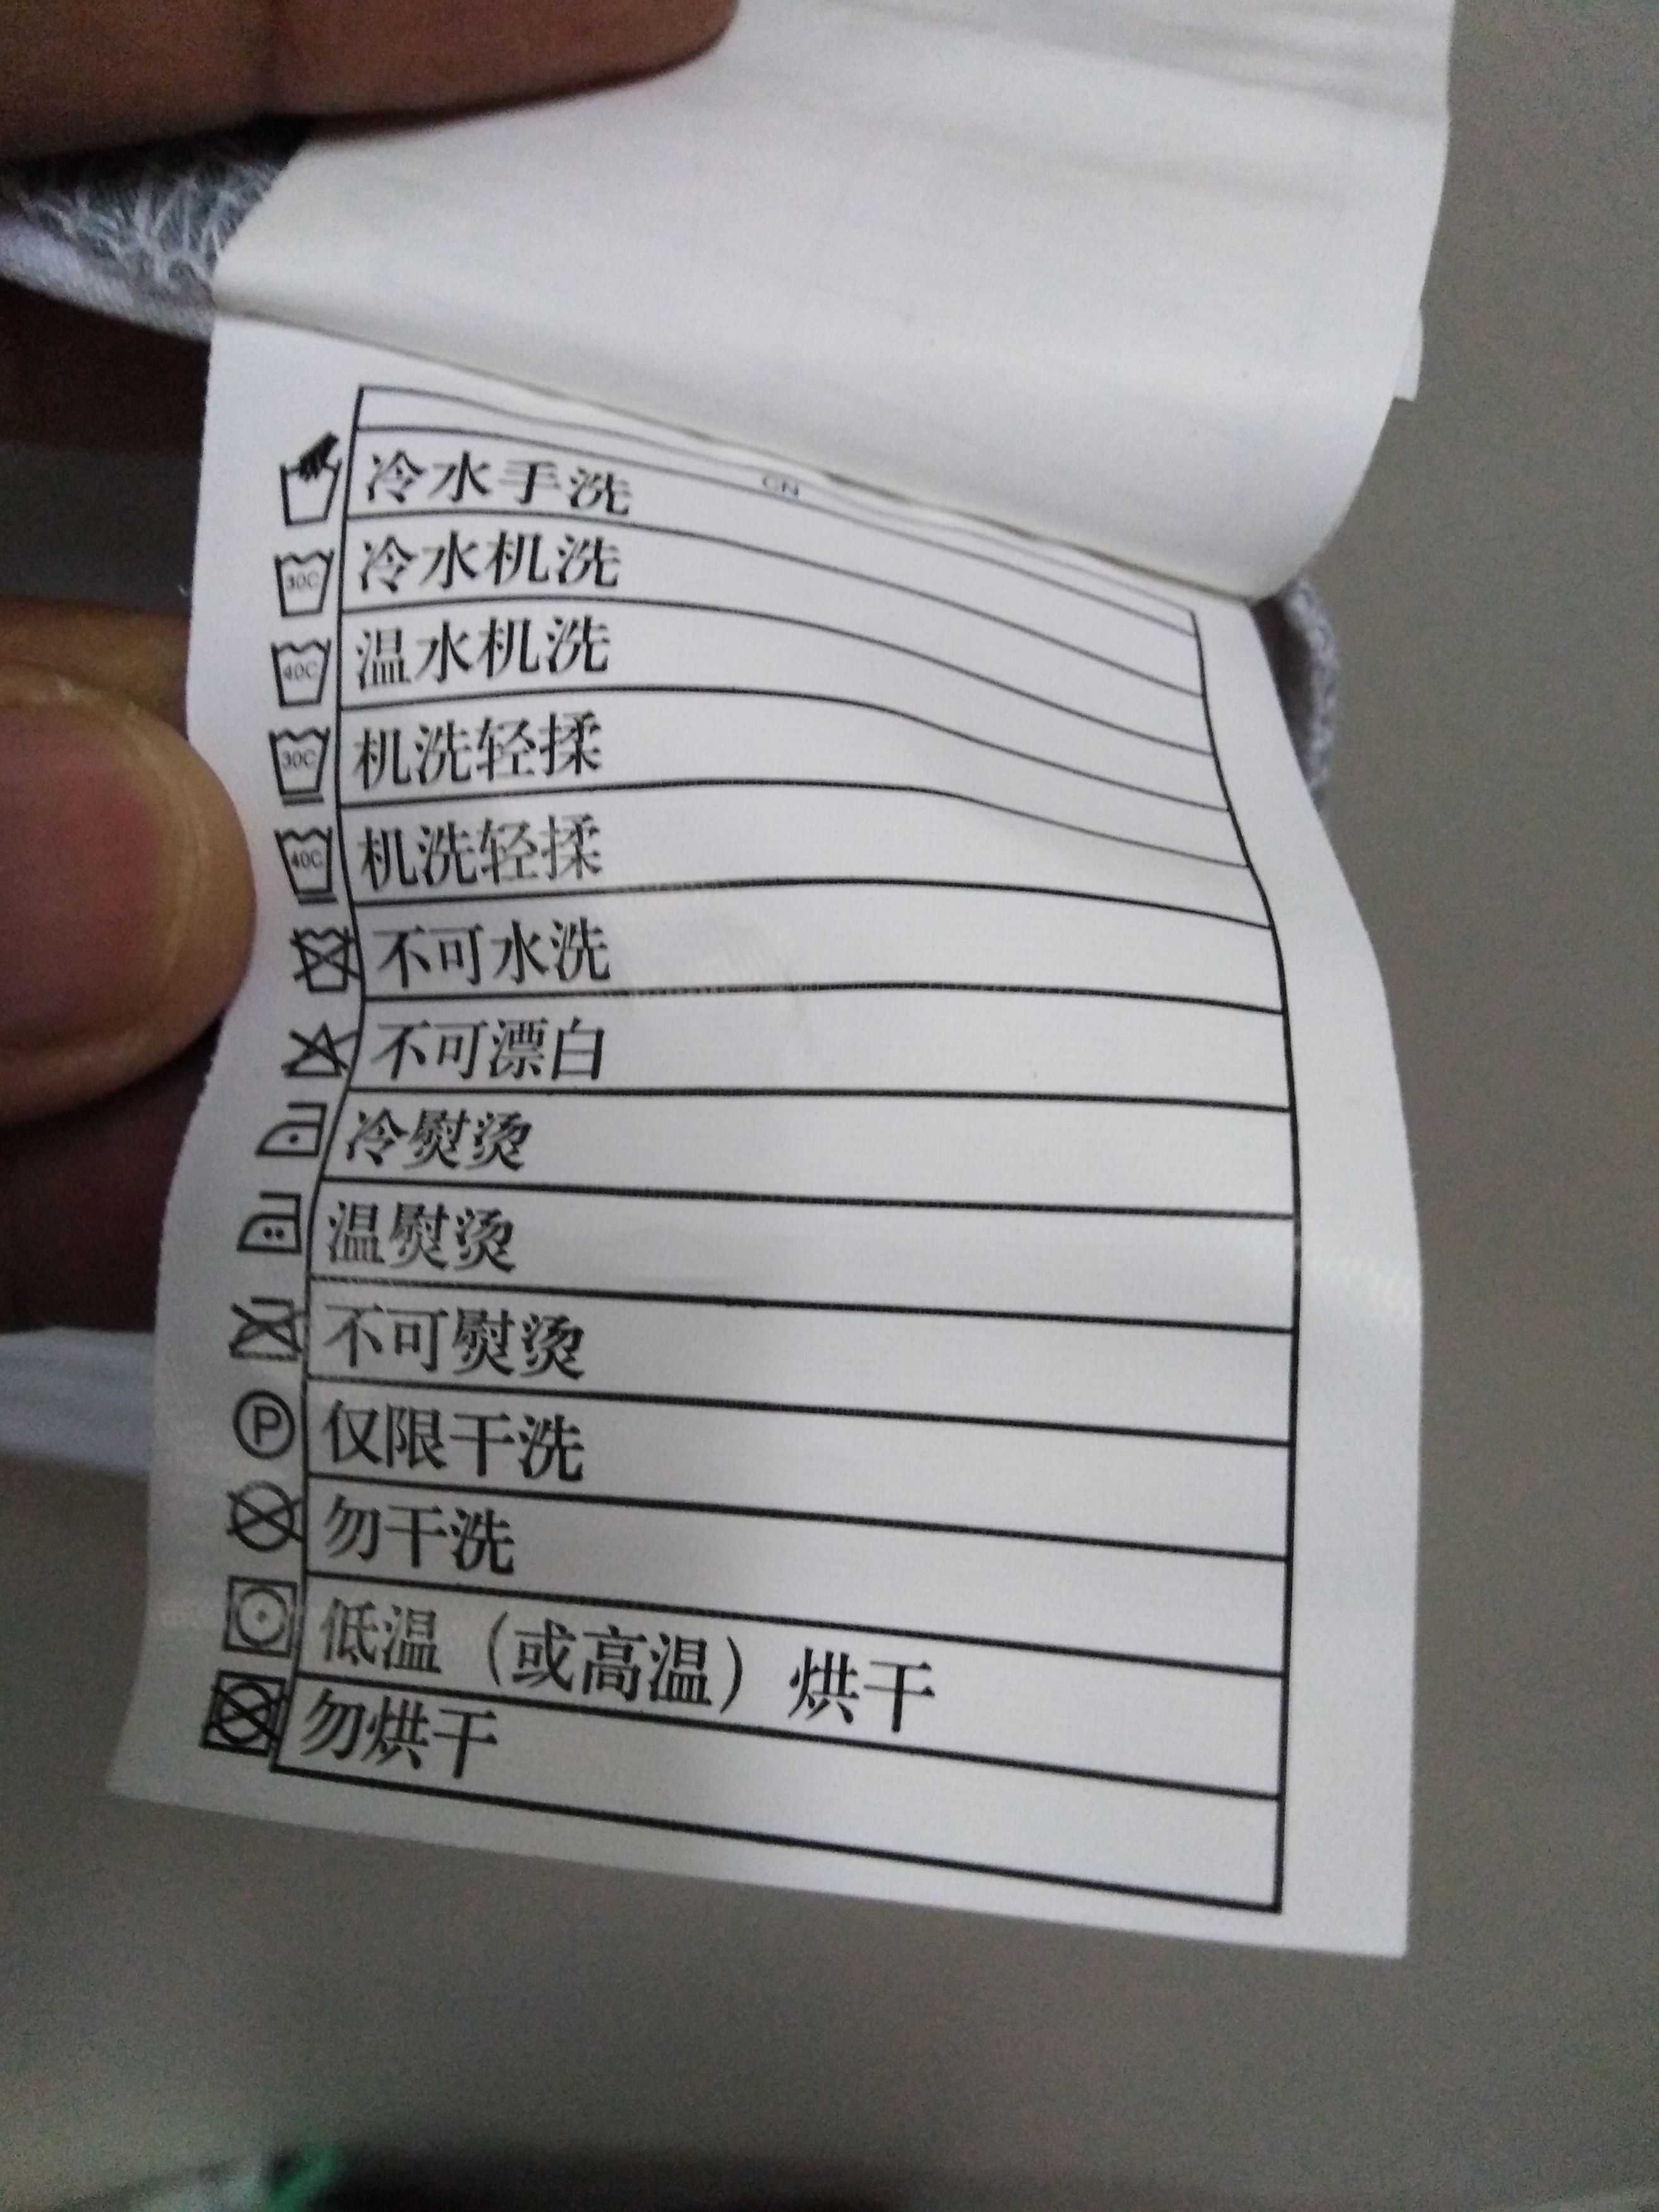 CN
冷水手洗
30C 冷水机洗
40C 温水机洗
30C 机洗轻揉
40C 机洗轻揉
不可水洗
不可漂白
冷熨烫
温熨烫
不可熨烫
P 仅限干洗
勿干洗
低温（或高温）烘干
勿烘干